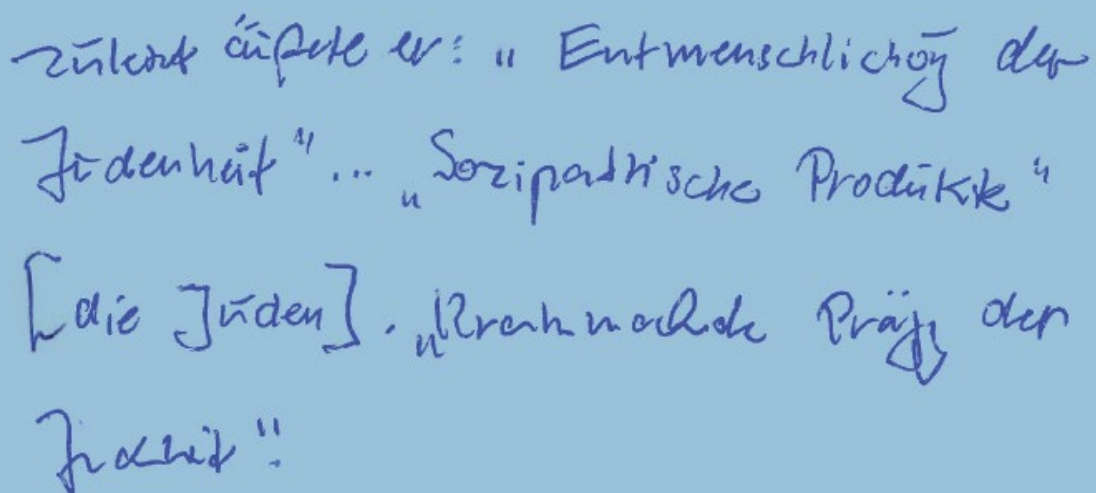 zuletzt äußerte er: „Entmenschlichung der
Judenheit" ... „Soziopathische Produkte"
[die Juden]. „Krankmachende Prägg der
Judenheit".